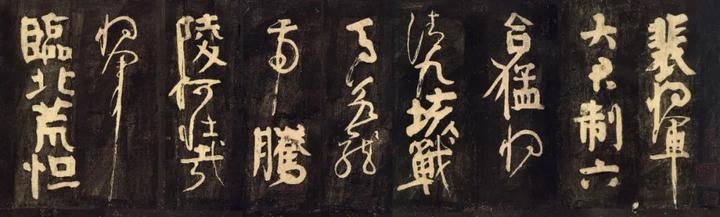 裴將軍
大君制六
合猛將
清九垓戰
馬若龍
虎騰
陵何壯哉
將軍
臨北荒烜